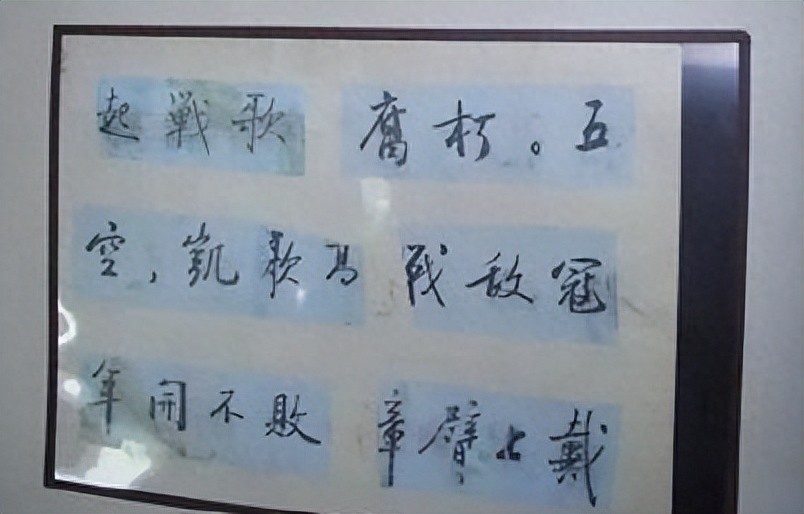 起戰歌 腐朽。五
空，凱歌馬 戰敵冠
年開不敗 章臂上戴